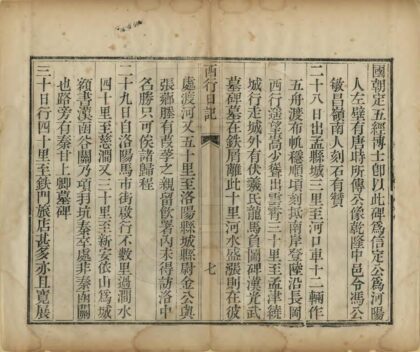 國朝定五經博士卽以此碑爲信定公爲河陽
人左壁有唐時所傳公像乾隆中邑令馮公
敏昌嶺南人刻石有贊
二十八日出孟縣城三里至河口車十二輛作
五舟渡布帆穩順頃刻抵南岸登陸沿長岡
西行遥望嵩少聳出雲霄三十里至孟津繞
城行走城外有伏羲氏龍馬負圖碑漢光武
墓碑墓在鐵屑離此十里河水盛漲則在彼
西行日記
七
處渡河又五十里至洛陽縣城縣尉金公與
張薌塍有葭莩之親留飲署內未得訪洛中
名勝只可俟諸歸程
二十九日自洛陽馬市街啟行不數里過澗水
四十里至慈澗又三十里至新安依山爲城
額書漢函谷關乃項羽坑秦卒處非秦函關
也路旁有秦甘上卿墓碑
三十日行四十里至鐵門旅店甚多亦且寬展